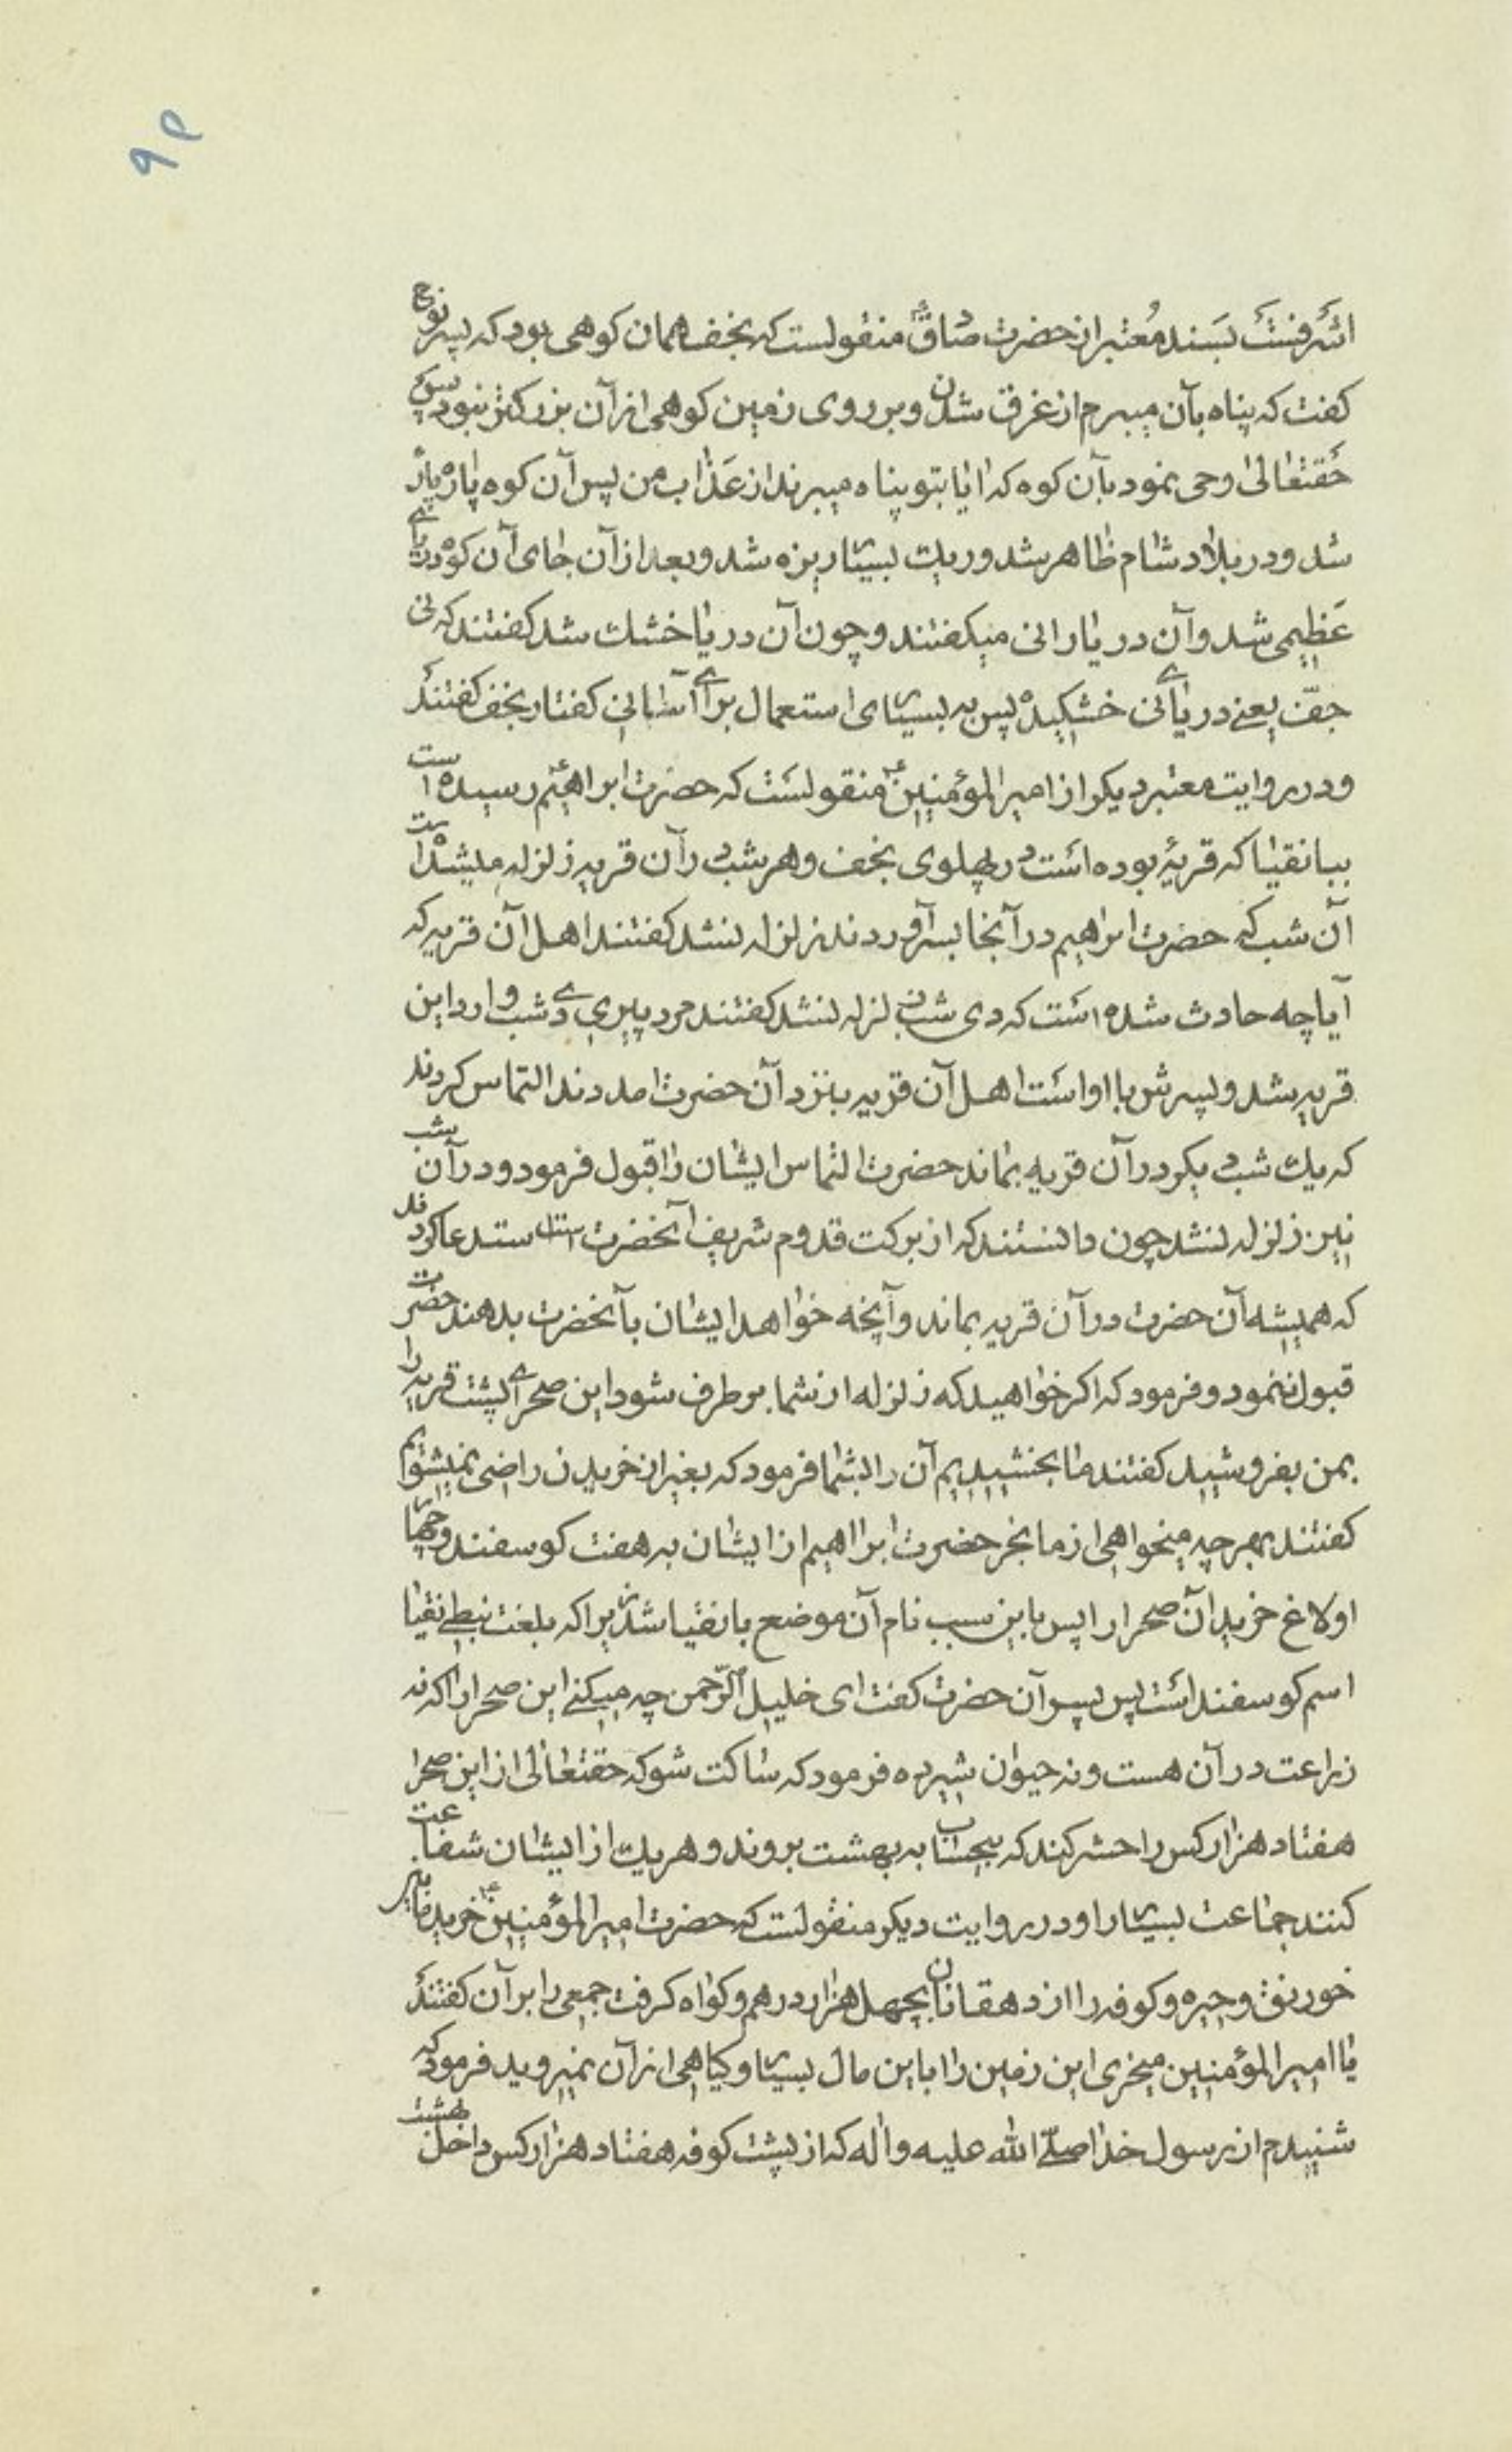 ۹۴
اشرفست بسند معتبر از حضرت صادق منقولست که نجف همان کوهی بود که پسر نوح
کفت که پناه بآن میبرم از غرق شدن و بر روی زمین کوهی از آن بزرکتر نبود پس
حقتعالی وحی نمود بآن کوه که ایا بتو پناه میبرند از عذاب من پس آن کوه پاره پاره
شد و در بلاد شام ظاهر شد و ریک بسیار ریزه شد و بعد از آن جای آن کوه دریای
عظیمی شد و آن دریا را نی میکفتند و چون آن دریا خشک شد کفتند که نی
جف یعنے دریای نی خشکیده پس به بسیاری استعمال برای آسانی کفتار نجف کفتند
و در روایت معتبر دیکر از امیرالمؤمنین ع منقولست که حضرت ابراهیم رسیده است
ببانقیا که قریهٔ بوده است در پهلوی نجف و هر شب در آن قریه زلزله میشد اما
آن شب که حضرت ابراهیم در آنجا بسر آوردند زلزله نشد کفتند اهل آن قریه که
آیا چه حادث شده است که دی شب زلزله نشد کفتند مرد پیری دی شب وارد این
قریه شد و پسرش با او است اهل آن قریه بنزد آن حضرت امدند التماس کردند
که یک شب دیکر در آن قریه بماند حضرت التماس ایشان را قبول فرمود و در آن شب
نیز زلزله نشد چون دانستند که از برکت قدوم شریف آنحضرت است استدعا کردند
که همیشه آن حضرت در آن قریه بماند و آنچه خواهد ایشان بآنحضرت بدهند حضرت
قبول ننمود و فرمود که اکر خواهید که زلزله از شما برطرف شود این صحرای پشت قریه را
بمن بفروشید کفتند ما بخشیدیم آن را بشما فرمود که بغیر از خریدن راضی نمیشوم
کفتند بهر چه میخواهی از ما بخر حضرت ابراهیم از ایشان به هفت کوسفند و چهار
اولاغ خرید آن صحرا را پس باین سبب نام آن موضع بانقیا شد زیرا که بلغت نبطے نقیا
اسم کوسفند است پس پسر آن حضرت کفت ای خلیل الرّحمن چه میکنے این صحرا را که نه
زراعت در آن هست و نه حیوان شیرده فرمود که ساکت شو که حقتعالی از این صحرا
هفتاد هزار کس را حشر کند که بیحساب به بهشت بروند و هریک از ایشان شفاعت
کنند جماعت بسیار را و در روایت دیکر منقولست که حضرت امیرالمؤمنین ع خرید مابین
خورنق و حیره و کوفه را از دهقانان بچهل هزار درهم و کواه کرفت جمعی را بر آن کفتند
یا امیرالمؤمنین میخری این زمین را باین مال بسیار و کیاهی از آن نمیروید فرمود که
شنیدم از رسول خدا صلّی الله علیه و اله که از پشت کوفه هفتاد هزار کس داخل بهشت